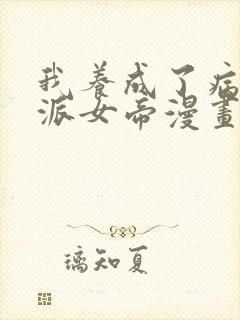 我養成了病
派女帝漫畫
璃知夏